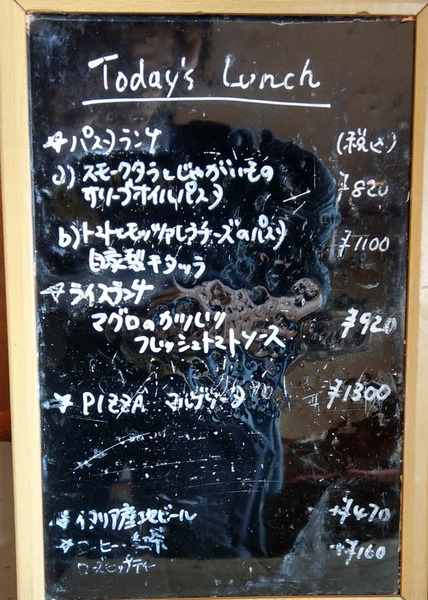 Today's Lunch
☆ パスタランチ (税込)
a) スモークタラとじゃがいもの
オリーブオイルパスタ ¥820
b) トマトとモッツァレラチーズのパスタ ¥1100
自家製キタッラ
☆ ライスランチ
マグロのカツレツ ¥920
フレッシュトマトソース
☆ PIZZA マルゲリータ ¥1300
☆ イタリア産地ビール +¥470
☆ コーヒー・紅茶 +¥160
ローズヒップティー